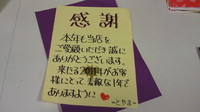 感謝
本年も当店を
ご愛顧いただき誠に
ありがとうございます。
来たる2011年がお客
様にとって素敵な1年で
ありますように